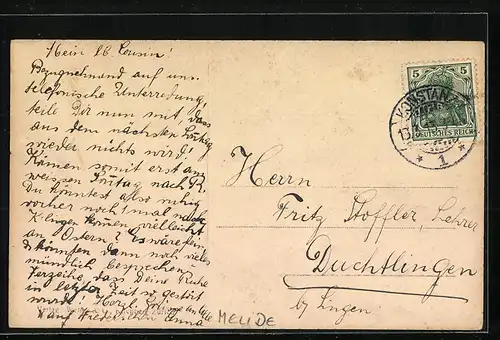 Mein lb. Cousin!
Bezugnehmend auf uns.
telefonische Unterredung,
teile Dir nun mit, dass
aus dem nächsten
wieder nichts wird!
Kämen somit erst am
weissen nach
Du könntest also ruhig
vorher noch 1 mal nach
kommen vielleicht
an Ostern? Es wäre fein,
könnten dann noch vieles
mündlich besprechen.
Verzeihe, dass Deine Ruhe
in letzter Zeit so gestört
wurde! Herzl. Grüsse an alle
auf Wiedersehen Anna
5 5
DEUTSCHES REICH
KONSTANZ
* 1 *
Herrn
Fritz Stoffler, Lehrer
Duchtlingen
by Singen
MELIDE